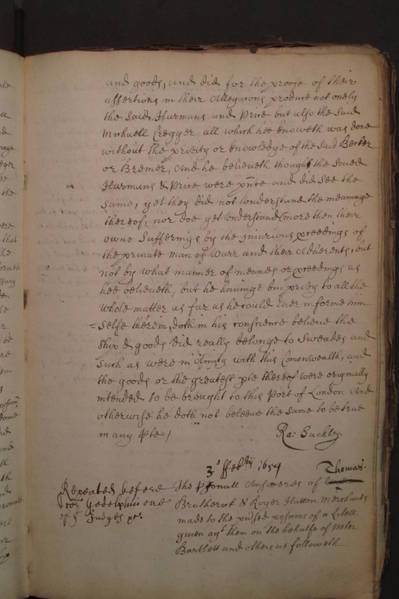 and goods, and did for the proofe of their
assertions in their Allegacons produce not onely
the said Harmans and Prine but alsoe the said
Michaell Cregger all which hee knoweth was done
without the privity or knowledge of the said Becker
or Bremer, And he believeth though the sayed
Harmans & Prine were pñte and did see the
same, yet they did not understand the meaninge
thereof, nor doe yet understand more then their
owne Sufferings by the injurious proceedings of
the private man of Warr and their Adherents, but
not by what manner of meanes or proceedings as
hee believeth, but he havinge bin privy to all the
whole matter as far as he could ever informe him
selfe therein, doth in his conscience believe the
Ship & goods did really belonge to Sweades and
such as were in Amity with this Comonwealth, and
the goods or the greatest pte thereof were originally
intended to be brought to this Port of London And
otherwise he doth not beleeve the same to be true
in any pte /
Ra: Suckley
3° ffebry 1654
Repeated before
Judges
The psonall Answeres of
Thomas
Brutherst & Roger Hatton Merchants
made to the psitions of a Libell
given agst them on the behalfe of
Bartlett and others as followeth